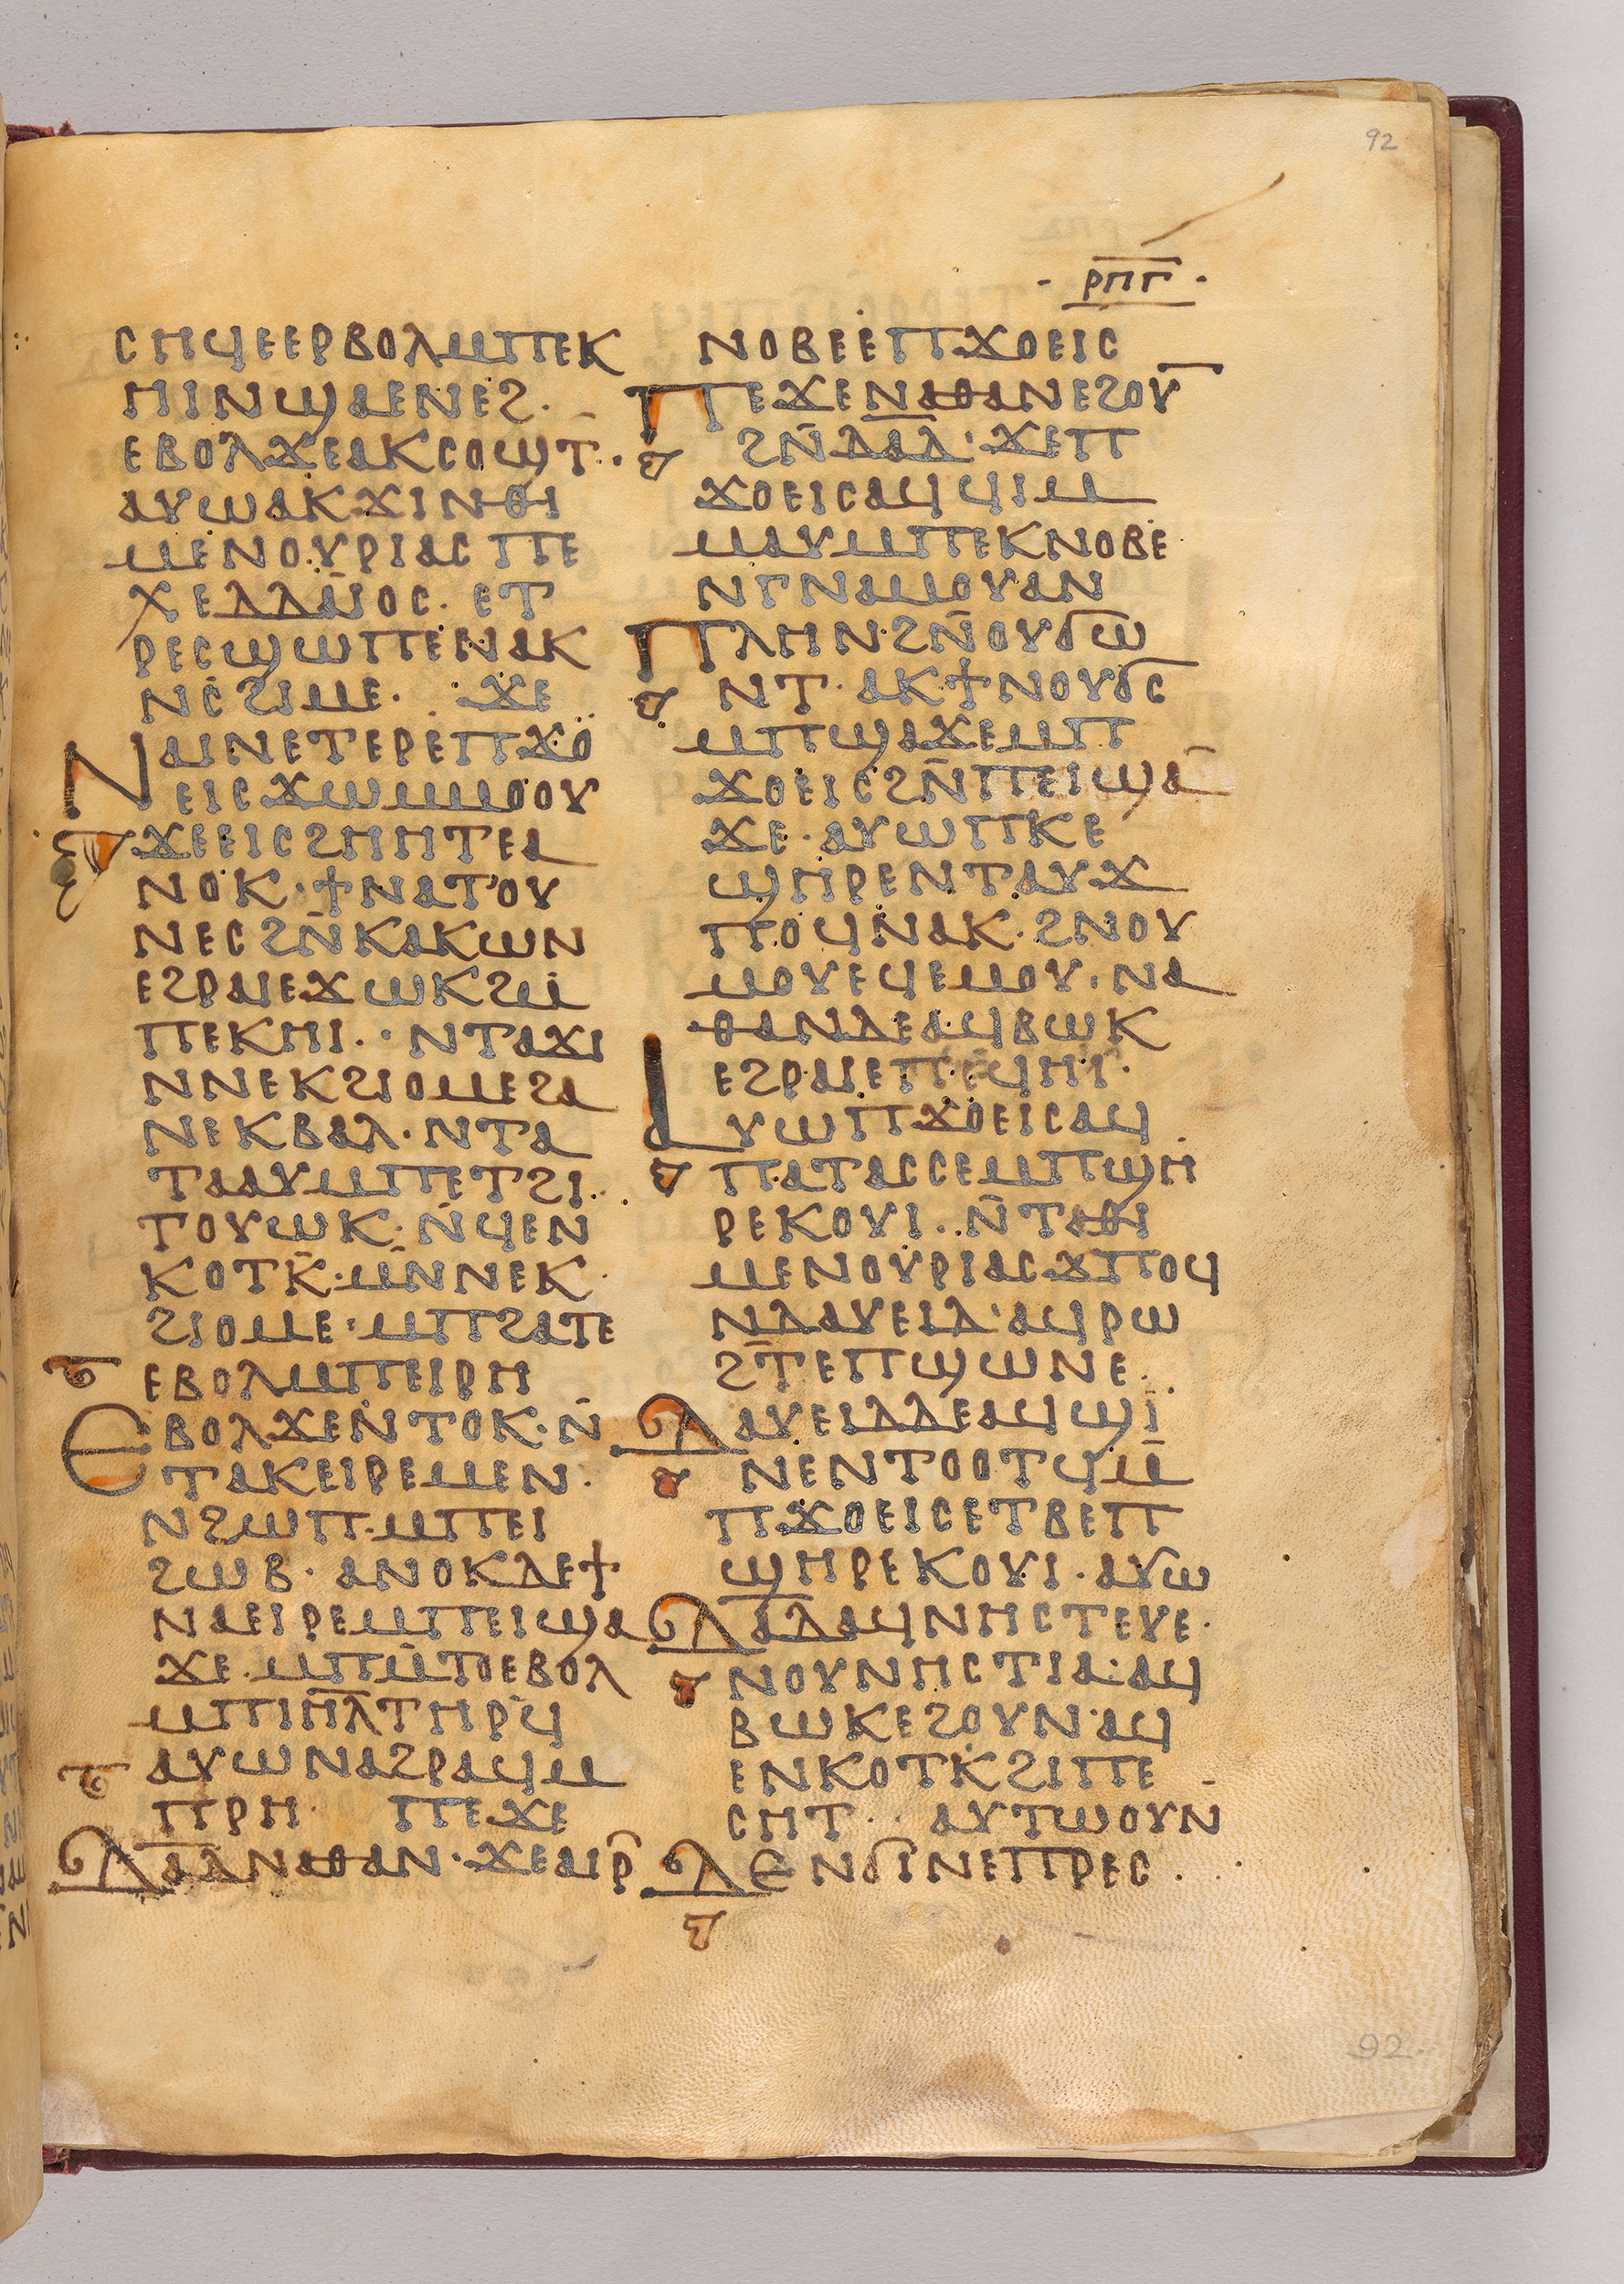 92
· ⲣⲡⲅ ·
ⲥⲏϥⲉⲉⲣⲃⲟⲗⲙⲡⲉⲕ
ⲏⲓⲛϣⲁⲉⲛⲉϩ·
ⲉⲃⲟⲗϫⲉⲁⲕⲥⲟϣⲧ̄·
ⲁⲩⲱⲁⲕϫⲓⲛⲑⲓ
ⲙⲉⲛⲟⲩⲣⲓⲁⲥ ⲡⲉ
ⲭⲉⲇⲇⲁⲓⲟⲥ· ⲉⲧ
ⲣⲉⲥϣⲱⲡⲉⲛⲁⲕ
ⲛⲥϩⲓⲙⲉ· ϫⲉ
ⲛⲁⲓⲛⲉⲧⲉⲣⲉⲡϫⲟ
ⲉⲓⲥϫⲱⲙⲙⲟⲟⲩ
ϫⲉⲉⲓⲥϩⲏⲏⲧⲉⲁ
ⲛⲟⲕ·ϯⲛⲁⲧⲟⲩ
ⲛⲉⲥϩⲛ̄ⲕⲁⲕⲱⲛ
ⲉϩⲣⲁⲓⲉϫⲱⲕϩⲙ̄
ⲡⲉⲕⲏⲓ·· ⲛⲧⲁϫⲓ
ⲛⲛⲉⲕϩⲓⲟⲙⲉϩⲁ
ⲛⲉⲕⲃⲁⲗ·ⲛⲧⲁ
ⲧⲁⲁⲩⲙⲡⲉⲧϩⲓ
ⲧⲟⲩⲱⲕ·ⲛ̄ϥⲉⲛ
ⲕⲟⲧⲕ̄·ⲙⲛ̄ⲛⲉⲕ
ϩⲓⲟⲙⲉ·ⲙⲡϩⲁⲧⲉ
ⲉⲃⲟⲗⲙⲡⲉⲓⲣⲏ
ⲉⲃⲟⲗϫⲉⲛⲧⲟⲕ·ⲛ̄
ⲧⲁⲕⲉⲓⲣⲉⲙⲉⲛ·
ⲛϩⲱⲡ·ⲙⲡⲉⲓ
ϩⲱⲃ· ⲁⲛⲟⲕⲇⲉϯ
ⲛⲁⲉⲓⲣⲉⲙⲡⲉⲓϣⲁ
ϫⲉ·ⲙⲡⲙ̄ⲧⲟⲉⲃⲟⲗ
ⲙⲡⲓⲏ̄ⲗ̄ⲧⲏⲣϥ
ⲁⲩⲱⲛⲁϩⲣⲁϥⲙ
ⲡⲣⲏ· ⲡⲉϫⲉ
ⲇⲁ̄ⲇ̄ⲛⲁⲑⲁⲛ·ϫⲉⲁⲓⲣ̄
ⲛⲟⲃⲉⲉⲡϫⲟⲉⲓⲥ
ⲡⲉϫⲉⲛⲁⲑⲁⲛⲉϩⲟⲩ̄
ϩⲛ̄ⲇⲁ̄ⲇ̄·ϫⲉⲡ
ϫⲟⲉⲓⲥⲁϥϥⲓⲙ
ⲙⲁⲩⲙⲡⲉⲕⲛⲟⲃⲉ
ⲛⲅⲛⲁⲙⲟⲩⲁⲛ
ⲡⲗⲏⲛ·ϩⲛ̄ⲟⲩϭⲱ
ⲛⲧ· ⲁⲕϯⲛⲟⲩϭⲥ
ⲙⲡϣⲁϫⲉⲙⲡ
ϫⲟⲉⲓⲥϩⲛ̄ⲡⲉⲓϣⲁ̄
ϫⲉ·ⲁⲩⲱⲡⲕⲉ
ϣⲏⲣⲉⲛⲧⲁⲩϫ
ⲡⲟϥⲛⲁⲕ·ϩⲛⲟⲩ
ⲙⲟⲩⲉϥⲉⲙⲟⲩ·ⲛⲁ
ⲑⲁⲛⲇⲉⲁϥⲃⲱⲕ
ⲉϩⲣⲁⲓⲉⲡⲉϥⲏⲓ·
ⲁⲩⲱⲡϫⲟⲉⲓⲥⲁϥ
ⲡⲁⲧⲁⲥⲥⲉⲙⲡϣⲏ
ⲣⲉⲕⲟⲩⲓ·ⲛ̄ⲧⲁⲑⲓ
ⲙⲉⲛⲟⲩⲣⲓⲁⲥϫⲡⲟϥ
ⲛⲇⲁⲩⲉⲓⲇ·ⲁϥⲣⲱ
ϩⲧ̄ⲉⲡϣⲱⲛⲉ·
ⲇⲁⲩⲉⲓⲇⲇⲉⲁϥϣⲓ
ⲛⲉⲛⲧⲟⲟⲧϥⲙ̄
ⲡϫⲟⲉⲓⲥⲉⲧⲃⲉⲡ
ϣⲏⲣⲉⲕⲟⲩⲓ·ⲁⲩⲱ
ⲇⲁ̄ⲇ̄ⲁϥⲛⲏⲥⲧⲉⲩⲉ·
ⲛⲟⲩⲛⲏⲥⲧⲓⲁ·ⲁϥ
ⲃⲱⲕⲉϩⲟⲩⲛ·ⲁϥ
ⲉⲛⲕⲟⲧⲕ̄ϩⲓⲡⲉ
ⲥⲏⲧ·· ⲁⲩⲧⲱⲟⲩⲛ̄
ⲇⲉⲛϭⲓⲛⲉⲡⲣⲉⲥ·
92·